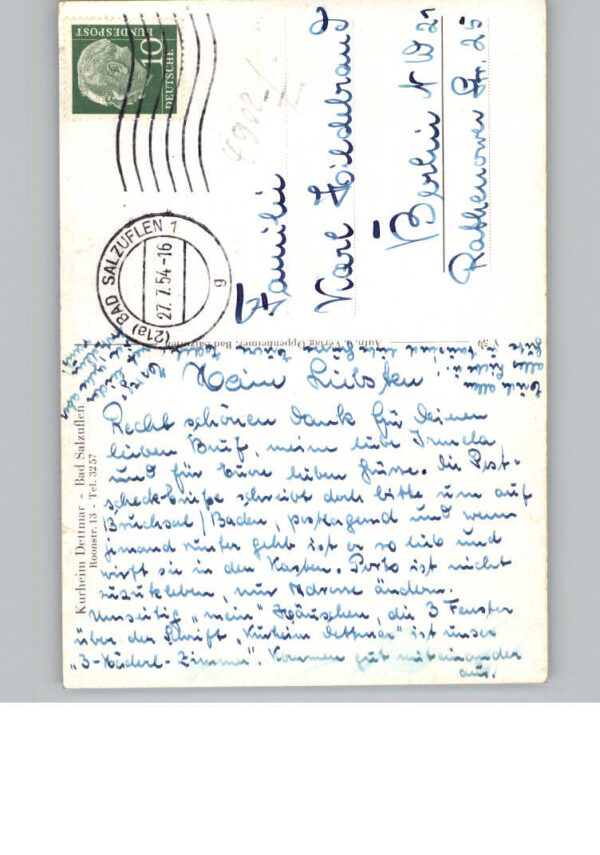 DEUTSCHE
BUNDESPOST
10
(21a) BAD SALZUFLEN 1
27.7.54-16
g
Familie
Karl Hildebrand
Berlin NW 21
Rathenower Str. 25
V 59
Verlag Oppenheimer, Bad Salzuflen
Kurheim Dettmar - Bad Salzuflen
Roonstr. 13 - Tel. 3257
Meine Liebsten!
Recht schönen Dank für Deinen
lieben Brief, meine liebe Irmela
und für Eure lieben Grüsse. Die Post-
scheck-briefe schreibt doch bitte um auf
Bruchsal/Baden, postlagernd und wenn
jemand runter geht ist er so lieb und
wirft sie in den Kasten. Porto ist nicht
zuzukleben, nur Adresse ändern.
Umseitig "mein" Häuschen, die 3 Fenster
über der Schrift "Kurheim Dettmar" ist unser
"3-Mäderl-Zimmer". Kommen gut miteinander
aus.
Euch allen
alles Liebe u.